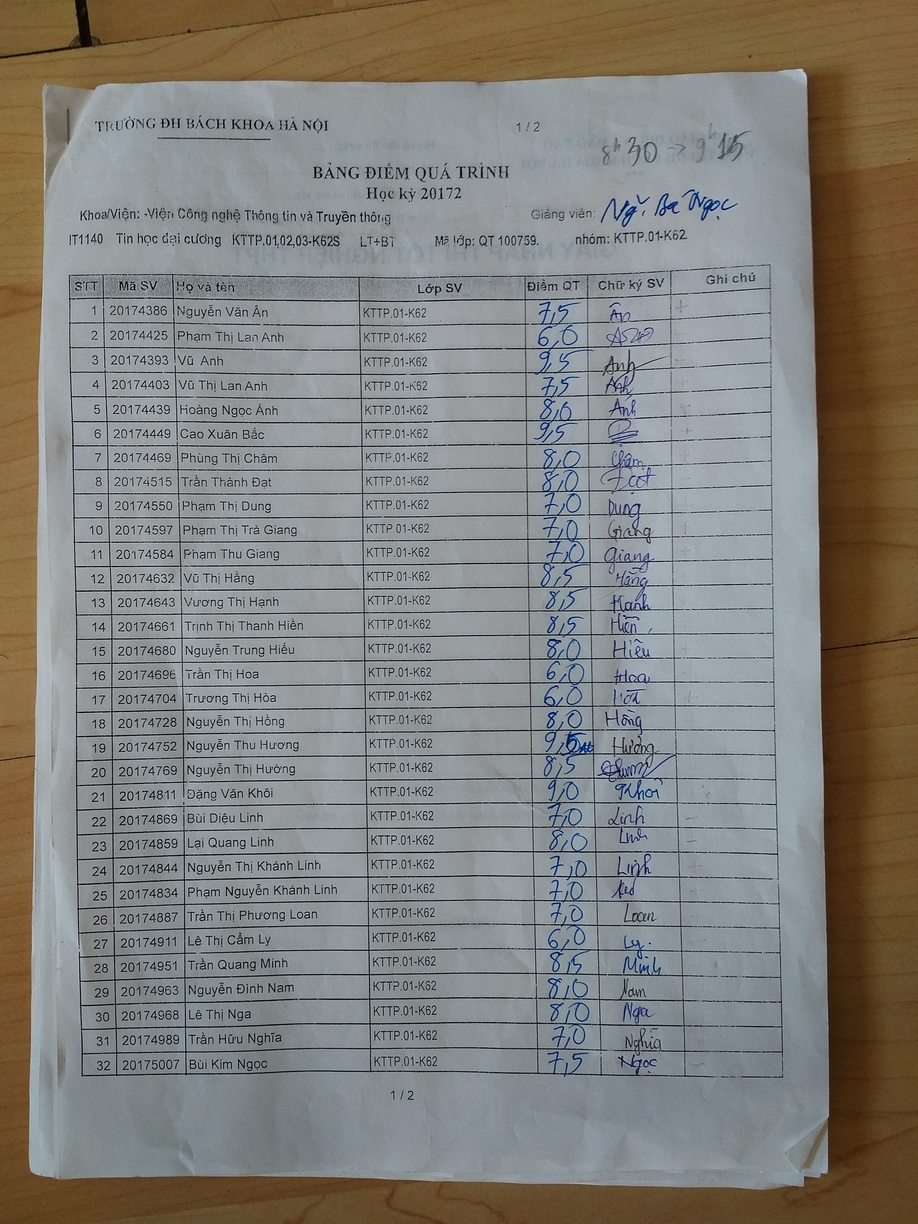 TRƯỜNG ĐH BÁCH KHOA HÀ NỘI 1 / 2
8h30 -> 9h15
BẢNG ĐIỂM QUÁ TRÌNH
Học kỳ 20172
Khoa/Viện: -Viện Công nghệ Thông tin và Truyền thông Giảng viên: Ng. Bá Ngọc
IT1140 Tin học đại cương KTTP.01,02,03-K62S LT+BT Mã lớp: QT 100759. nhóm: KTTP.01-K62.
STT Mã SV Họ và tên Lớp SV Điểm QT Chữ ký SV Ghi chú
1 20174386 Nguyễn Văn Ân KTTP.01-K62 7,5 Ân
2 20174425 Phạm Thị Lan Anh KTTP.01-K62 6,0
3 20174393 Vũ Anh KTTP.01-K62 9,5 Anh
4 20174403 Vũ Thị Lan Anh KTTP.01-K62 7,5 Anh
5 20174439 Hoàng Ngọc Ánh KTTP.01-K62 8,0 Ánh
6 20174449 Cao Xuân Bắc KTTP.01-K62 9,5
7 20174469 Phùng Thị Châm KTTP.01-K62 8,0 Châm
8 20174515 Trần Thành Đạt KTTP.01-K62 8,0
9 20174550 Phạm Thị Dung KTTP.01-K62 7,0 Dung
10 20174597 Phạm Thị Trà Giang KTTP.01-K62 7,0 Giang
11 20174584 Phạm Thu Giang KTTP.01-K62 7,0 Giang
12 20174632 Vũ Thị Hằng KTTP.01-K62 8,5 Hằng
13 20174643 Vương Thị Hạnh KTTP.01-K62 8,5 Hạnh
14 20174661 Trịnh Thị Thanh Hiền KTTP.01-K62 8,5 Hiền
15 20174680 Nguyễn Trung Hiếu KTTP.01-K62 8,0 Hiếu
16 20174696 Trần Thị Hoa KTTP.01-K62 6,0 Hoa
17 20174704 Trương Thị Hòa KTTP.01-K62 6,0 Hòa
18 20174728 Nguyễn Thị Hồng KTTP.01-K62 8,0 Hồng
19 20174752 Nguyễn Thu Hương KTTP.01-K62 9,5 Hương
20 20174769 Nguyễn Thị Hường KTTP.01-K62 8,5
21 20174811 Đặng Văn Khôi KTTP.01-K62 9,0 Khôi
22 20174869 Bùi Diệu Linh KTTP.01-K62 7,0 Linh
23 20174859 Lại Quang Linh KTTP.01-K62 8,0 Linh
24 20174844 Nguyễn Thị Khánh Linh KTTP.01-K62 7,0 Linh
25 20174834 Phạm Nguyễn Khánh Linh KTTP.01-K62 7,0
26 20174887 Trần Thị Phương Loan KTTP.01-K62 7,0 Loan
27 20174911 Lê Thị Cẩm Ly KTTP.01-K62 6,0 Ly.
28 20174951 Trần Quang Minh KTTP.01-K62 8,5 Minh
29 20174963 Nguyễn Đình Nam KTTP.01-K62 8,0 Nam
30 20174968 Lê Thị Nga KTTP.01-K62 8,0 Nga
31 20174989 Trần Hữu Nghĩa KTTP.01-K62 7,0 Nghĩa
32 20175007 Bùi Kim Ngọc KTTP.01-K62 7,5 Ngọc
1 / 2